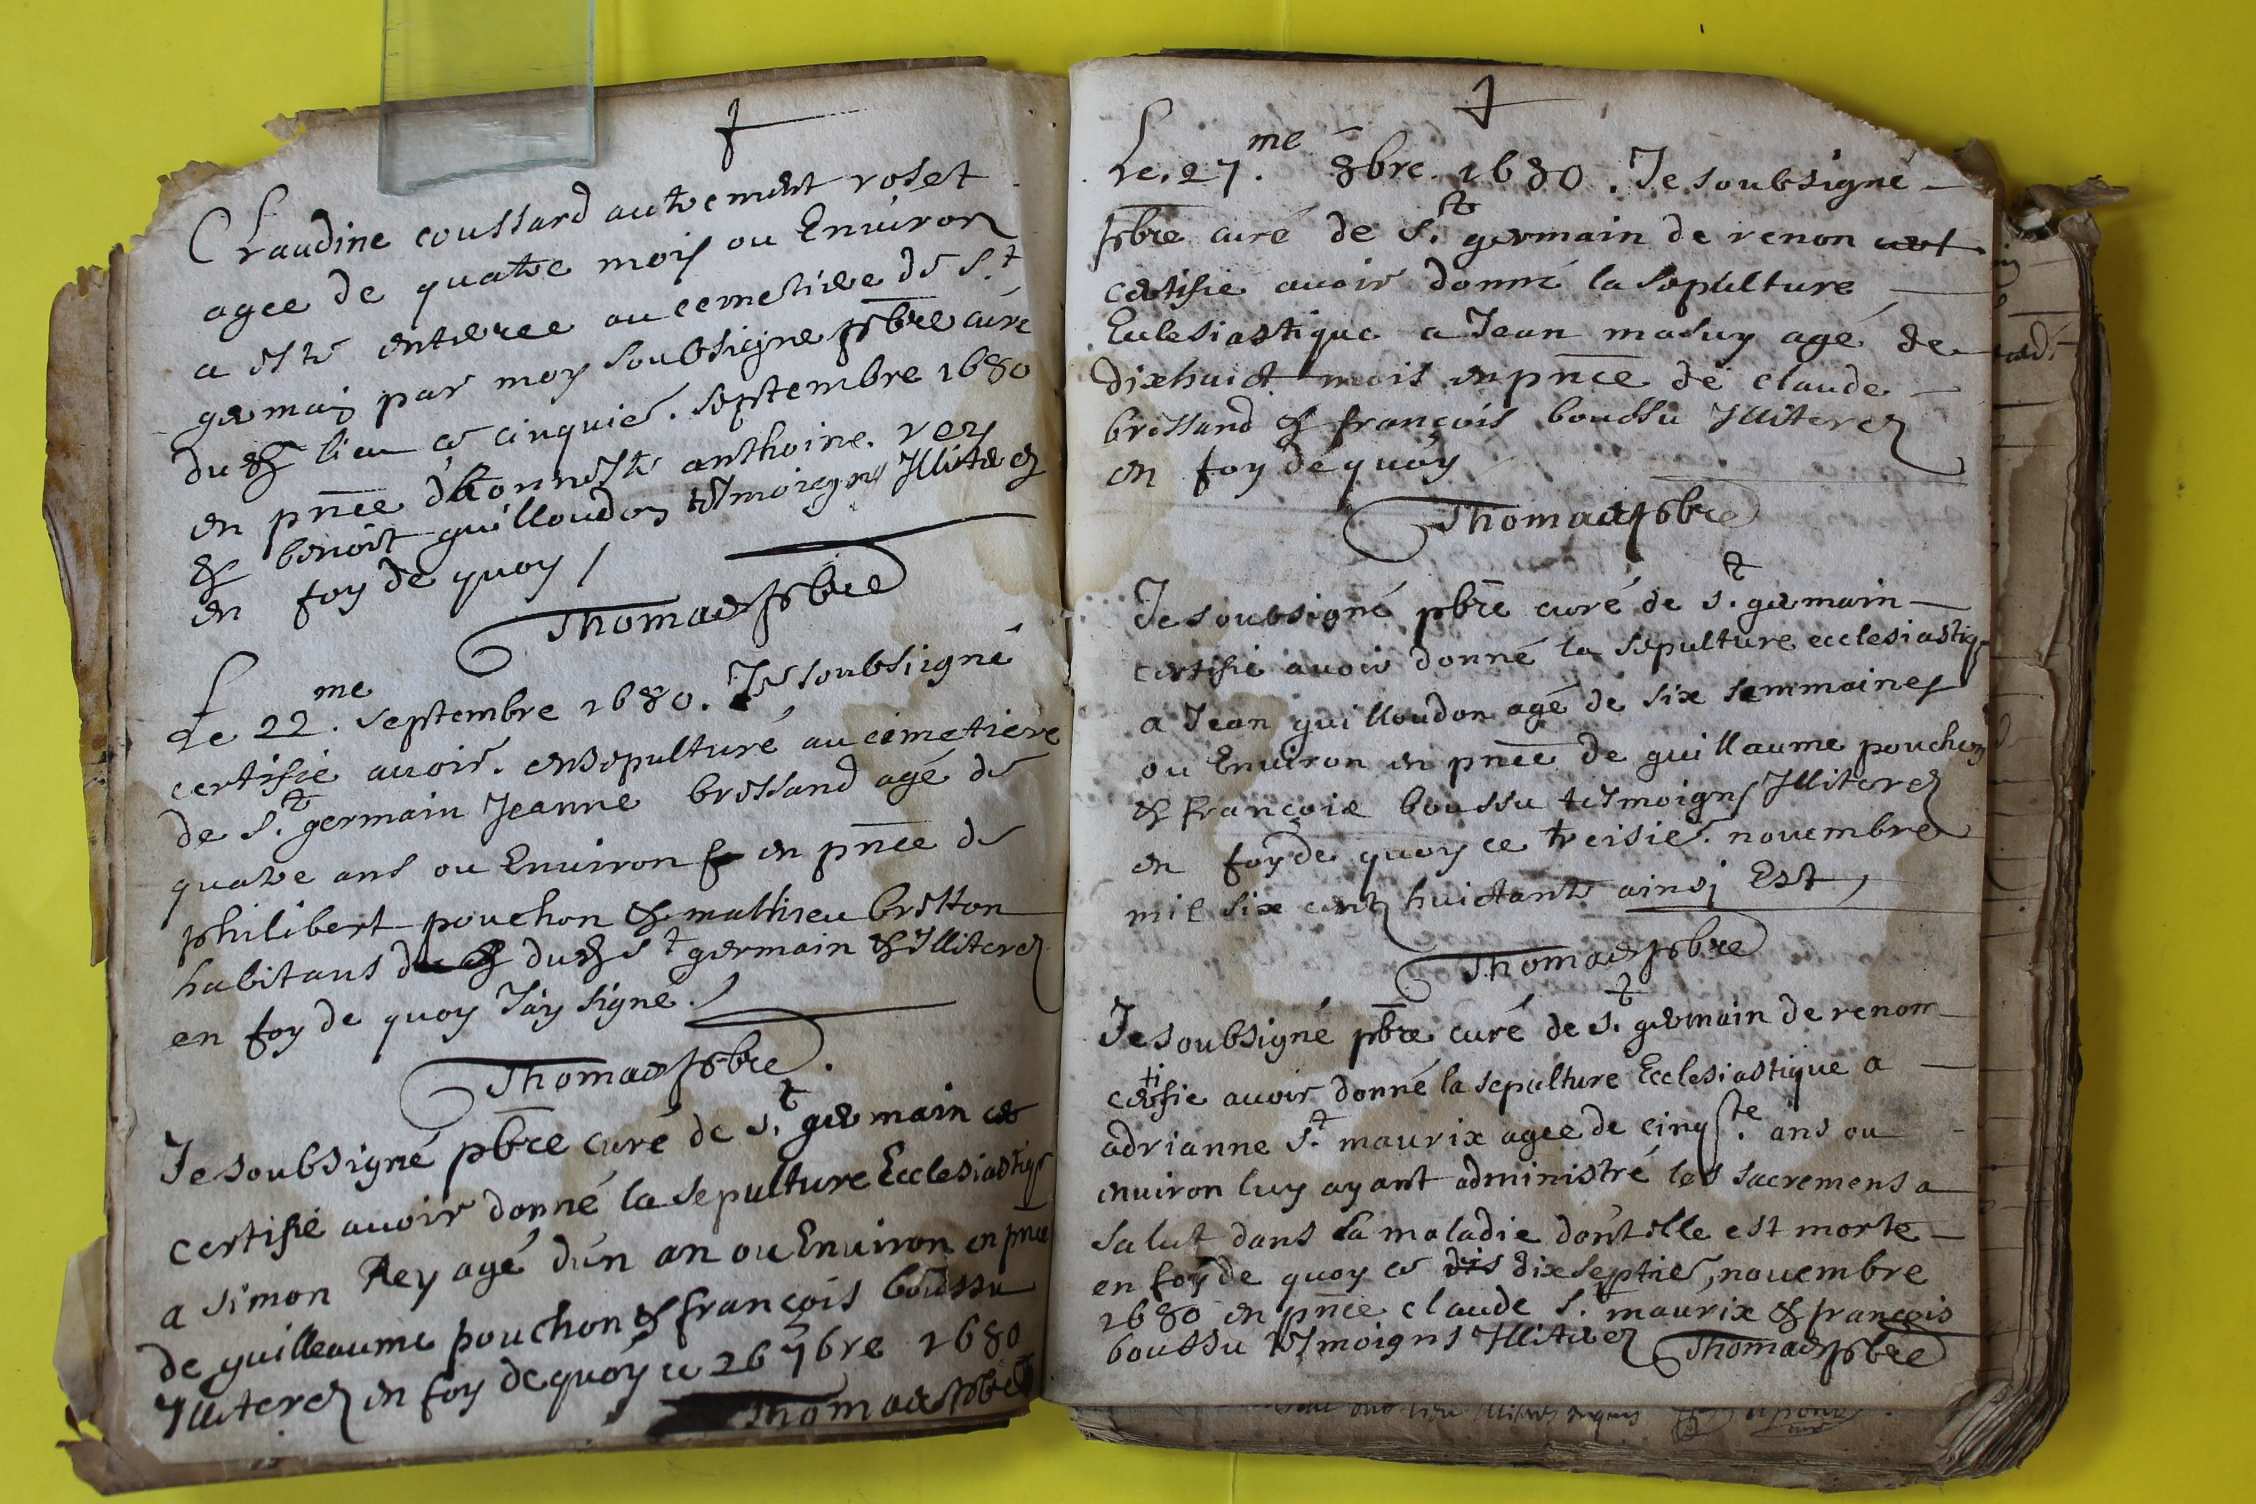 Claudine coussard autrement roset
agee de quatre mois ou Environ
a esté enterree au cemetiere de S.t
germain par moy soubsigne pbre curé
dud lieu ce cinquie. septembre 1680
en pnce d'honneste anthoine rey
& benoit guilloudon tesmoigns Illiterez
en foy de quoy /
Thomas pbre
Le 22.me septembre 1680. Je soubsigné
certifie avoir ensepulturé au cimetiere
de S.t germain Jeanne brossand agé de
quatre ans ou Environ en pnce de
philibert pouchon & mathieu bretton
habitans dud St germain & Illiterez
en foy de quoy J'ay signé.
Thomas pbre.
Je soubsigné pbre curé de S.t germain
certifie avoir donné la sepulture Ecclesiastiq
a simon Rey agé d'un an ou Environ en pnce
de guilleaume pouchon & françois boussu
Illiterez en foy de quoy ce 26 7bre 1680
Thomas pbre
Le. 27.me 8bre. 1680. Je soubsigné
pbre curé de S.t germain de renon
certifie avoir donné la sepulture
Eclesiastique a Jean masuy agé de
dixhuict mois en pnce de claude
brossand & françois boussu Illiterez
en foy de quoy
Thomas pbre
Je soubsigné pbre curé de S.t germain
certifie avoir donné la sepulture ecclesiastiq
a Jean guilloudon agé de six semmaines
ou Environ en pnce de guillaume pouchon
& françois boussu tesmoigns Illiterez
en foy de quoy ce treisie. novembre
mil six centz huictante ainsi Est,
Thomas pbre
Je soubsigné pbre curé de S.t germain de renon
certifie avoir donné la sepulture Ecclesiastique a
adrianne S.t maurix agee de cinq.te ans ou
environ luy ayant administré les sacremens a
salut dans la maladie dont elle est morte
en foy de quoy ce dis dix septie, novembre
1680 en pnce claude S.t maurix & françois
boussu tesmoigns Illiterez Thomas pbre